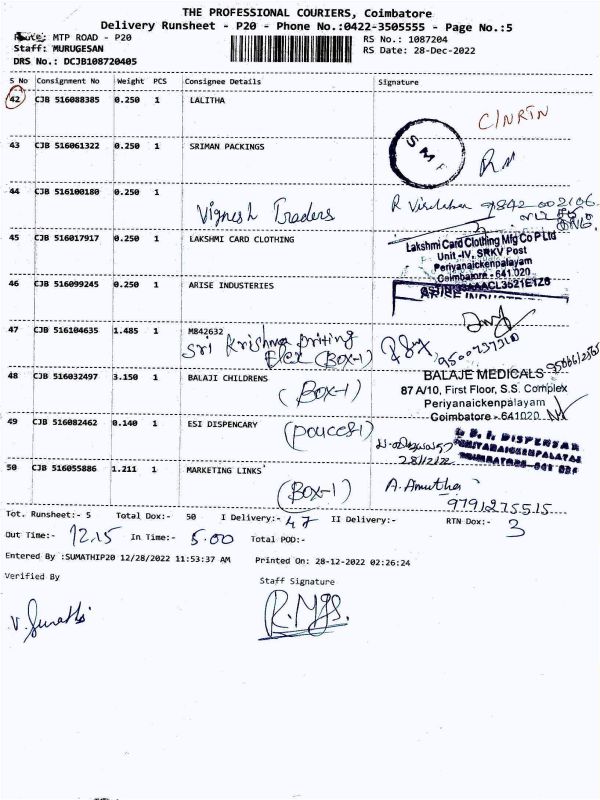 THE PROFESSIONAL COURIERS, Coimbatore
Delivery Runsheet - P20 - Phone No.:0422-3505555 - Page No.:5
Route: MTP ROAD - P20
RS No.: 1087204
Staff: MURUGESAN
RS Date: 28-Dec-2022
DRS No.: DCJB108720405
S No Consignment No Weight PCS Consignee Details Signature
42 CJB 516088385 0.250 1 LALITHA
C/NRTN
43 CJB 516061322 0.250 1 SRIMAN PACKINGS
SMF
44 CJB 516100180 0.250 1
Vignesh Traders
9842 002106
45 CJB 516017917 0.250 1 LAKSHMI CARD CLOTHING
Lakshmi Card Clothing Mfg Co P Ltd
Unit -IV, SRKV Post
Periyanaickenpalayam
Coimbatore - 641 020
46 CJB 516099245 0.250 1 ARISE INDUSTERIES
ARISE INDUSTR
47 CJB 516104635 1.485 1 M842632
Sri Krishna Priting
Flex (Box-1)
48 CJB 516032497 3.150 1 BALAJI CHILDRENS
(Box-1)
BALAJE MEDICALS
87 A/10, First Floor, S.S. Complex
Periyanaickenpalayam
Coimbatore - 641020
49 CJB 516082462 0.140 1 ESI DISPENCARY
28/12/22
50 CJB 516055886 1.211 1 MARKETING LINKS
(Box-1)
A. Amutha
9791275515
Tot. Runsheet:- 5 Total Dox:- 50 I Delivery:- 47 II Delivery:- RTN Dox:- 3
Out Time:- 12.15 In Time:- 5.00 Total POD:-
Entered By :SUMATHIP20 12/28/2022 11:53:37 AM Printed On: 28-12-2022 02:26:24
Verified By Staff Signature